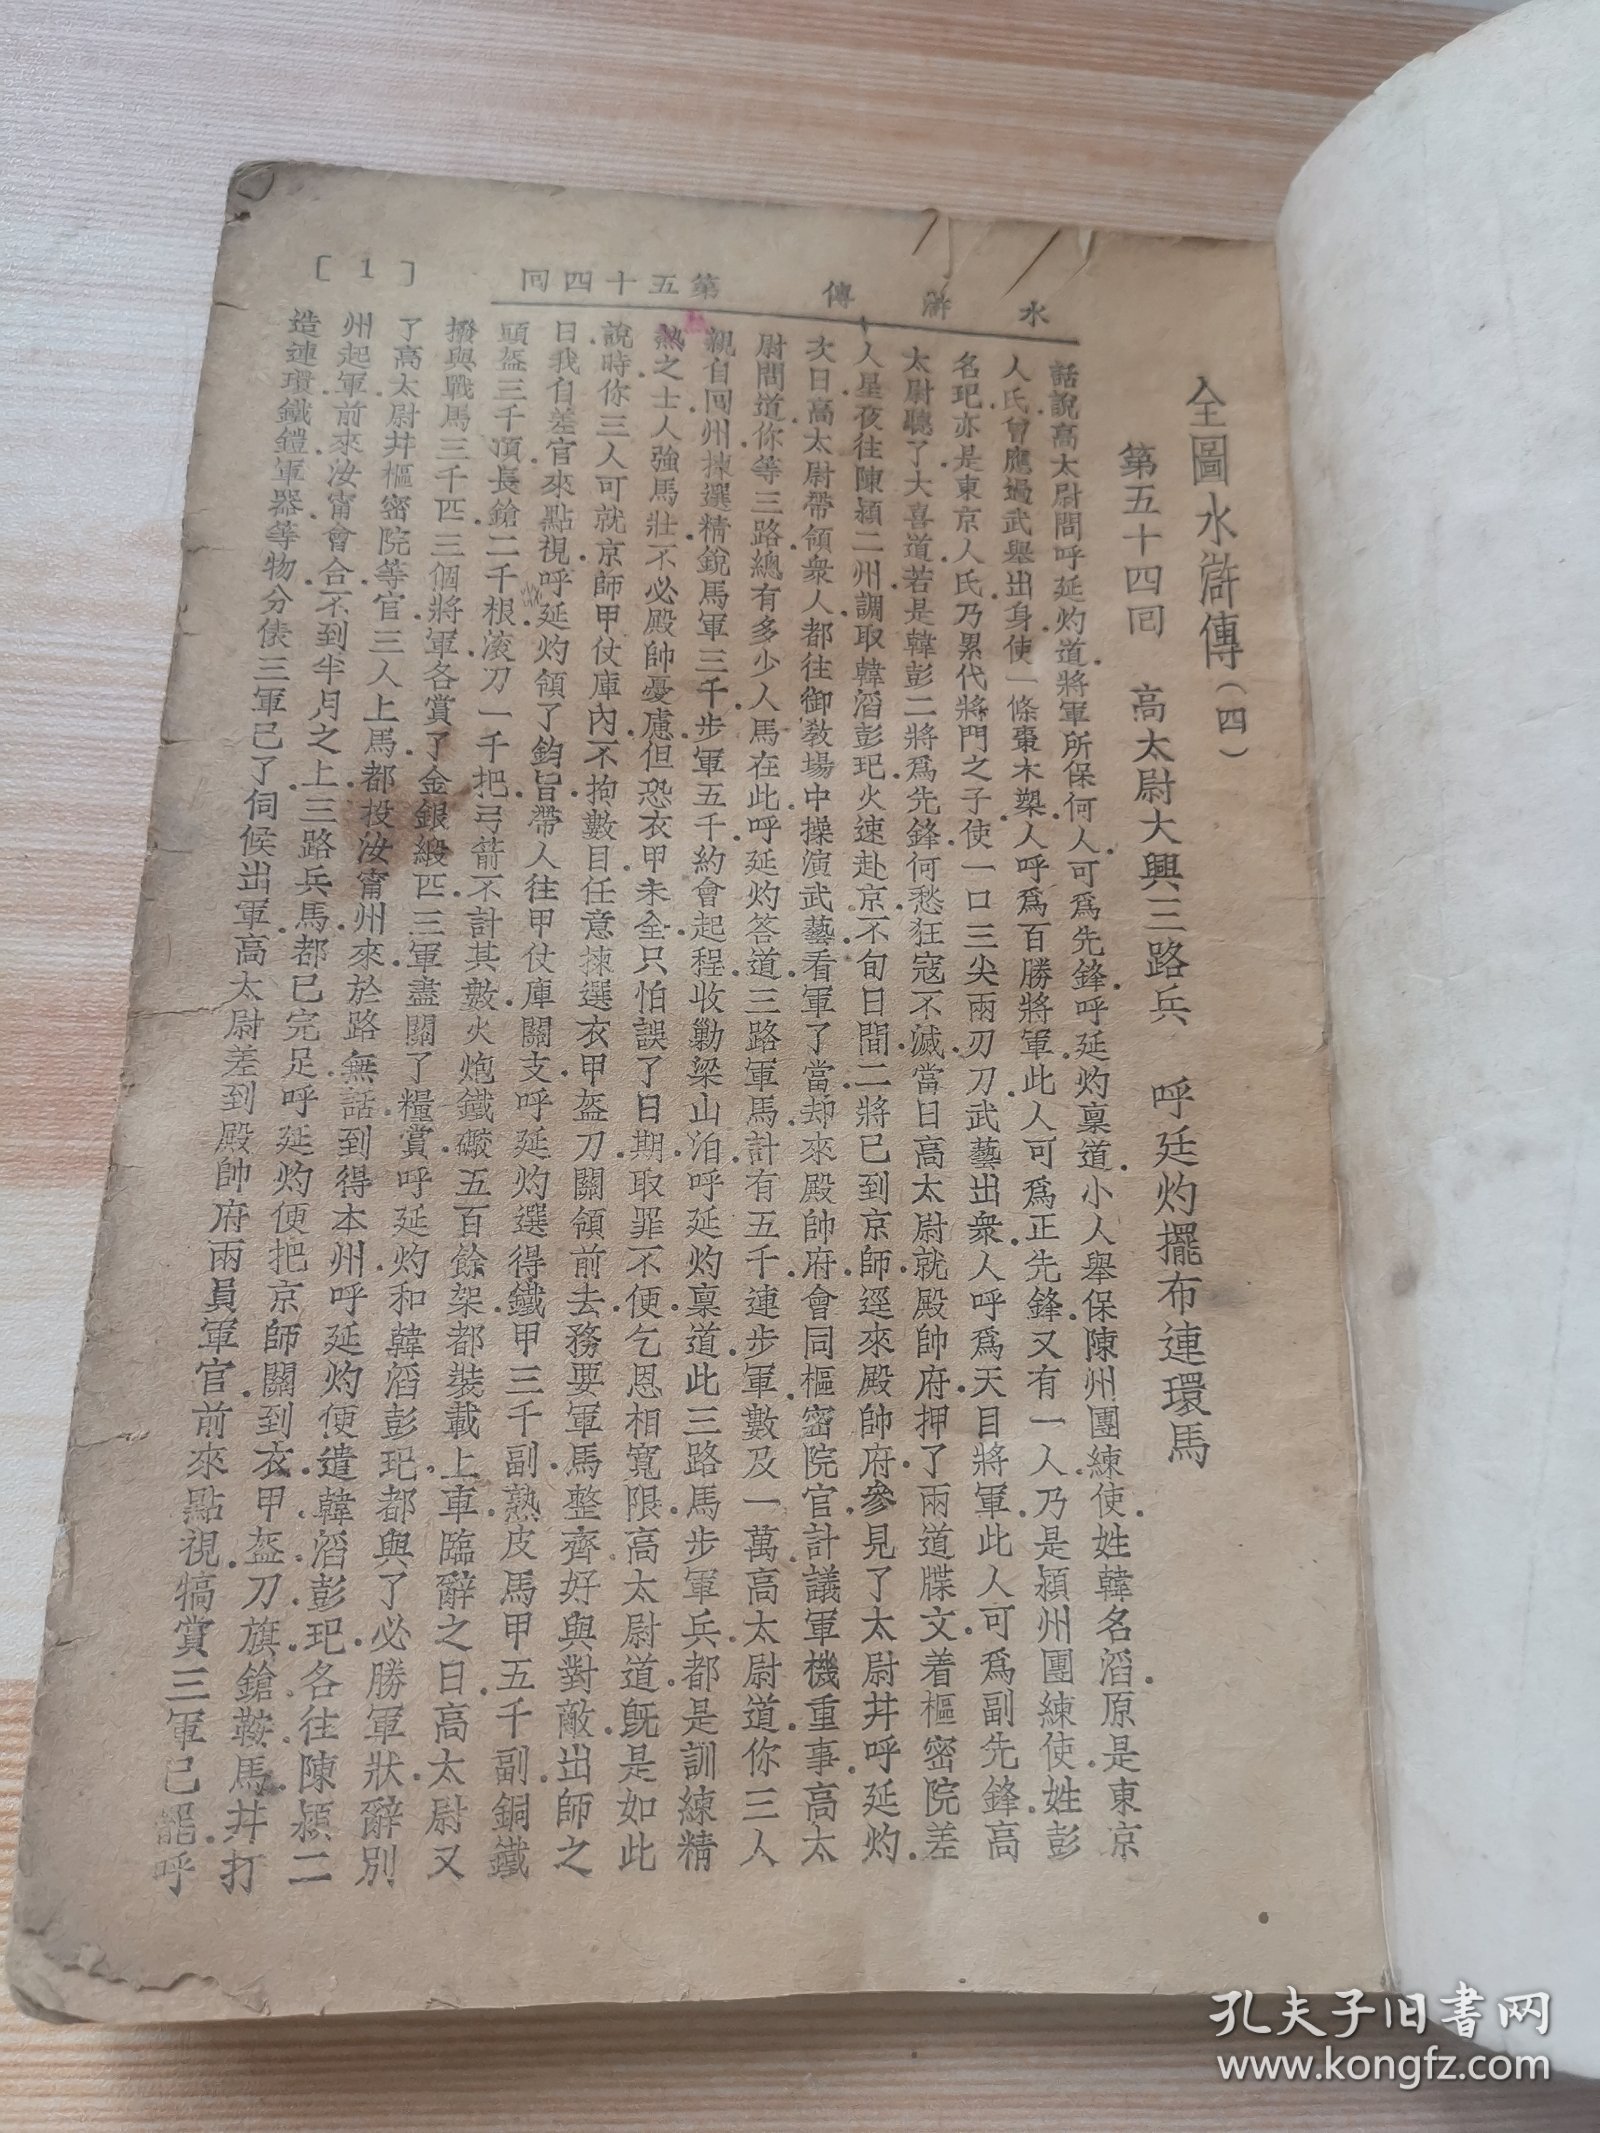 水滸傳 第五十四回 [1]
全圖水滸傳(四)
第五十四回 高太尉大興三路兵 呼延灼擺布連環馬
話說高太尉問呼延灼道.將軍所保何人.可爲先鋒.呼延灼稟道.小人舉保陳州團練使.姓韓名滔.原是東京
人氏.曾應過武舉出身.使一條棗木槊.人呼爲百勝將軍.此人可爲正先鋒.又有一人.乃是潁州團練使.姓彭
名玘.亦是東京人氏.乃累代將門之子.使一口三尖兩刃刀.武藝出衆.人呼爲天目將軍.此人可爲副先鋒.高
太尉聽了大喜道.若是韓彭二將爲先鋒.何愁狂寇不滅.當日高太尉就殿帥府.押了兩道牒文.着樞密院差
人星夜往陳潁二州.調取韓滔彭玘.火速赴京.不旬日間.二將已到京師.逕來殿帥府.參見了太尉幷呼延灼.
次日.高太尉帶領衆人.都往御敎場中操演武藝.看軍了當.却來殿帥府.會同樞密院官.計議軍機重事.高太
尉問道.你等三路總有多少人馬在此.呼延灼答道.三路軍馬計有五千.連步軍數及一萬.高太尉道.你三人
親自回州.揀選精銳馬軍三千.步軍五千.約會起程.收勦梁山泊.呼延灼稟道.此三路馬步軍兵.都是訓練精
熟之士.人強馬壯.不必殿帥憂慮.但恐衣甲未全.只怕誤了日期.取罪不便.乞恩相寬限.高太尉道.旣是如此
說時.你三人可就京師甲仗庫內.不拘數目.任意揀選衣甲盔刀.關領前去.務要軍馬整齊.好與對敵.出師之
日.我自差官來點視.呼延灼領了鈞旨.帶人往甲仗庫關支.呼延灼選得鐵甲三千副.熟皮馬甲五千副.銅鐵
頭盔三千頂.長鎗二千根.滾刀一千把.弓箭不計其數.火炮鐵礮五百餘架.都裝載上車.臨辭之日.高太尉又
撥與戰馬三千匹.三個將軍.各賞了金銀緞匹.三軍盡關了糧賞.呼延灼和韓滔彭玘.都與了必勝軍狀.辭別
了高太尉幷樞密院等官.三人上馬.都投汝甯州來.於路無話.到得本州.呼延灼便遣韓滔彭玘.各往陳潁二
州起軍.前來汝甯會合.不到半月之上.三路兵馬.都已完足.呼延灼便把京師關到衣甲盔刀.旗鎗鞍馬.幷打
造連環鐵鎧.軍器等物.分俵三軍已了.伺候出軍.高太尉差到殿帥府兩員軍官.前來點視.犒賞三軍已罷.呼
孔夫子旧书网
www.kongfz.com